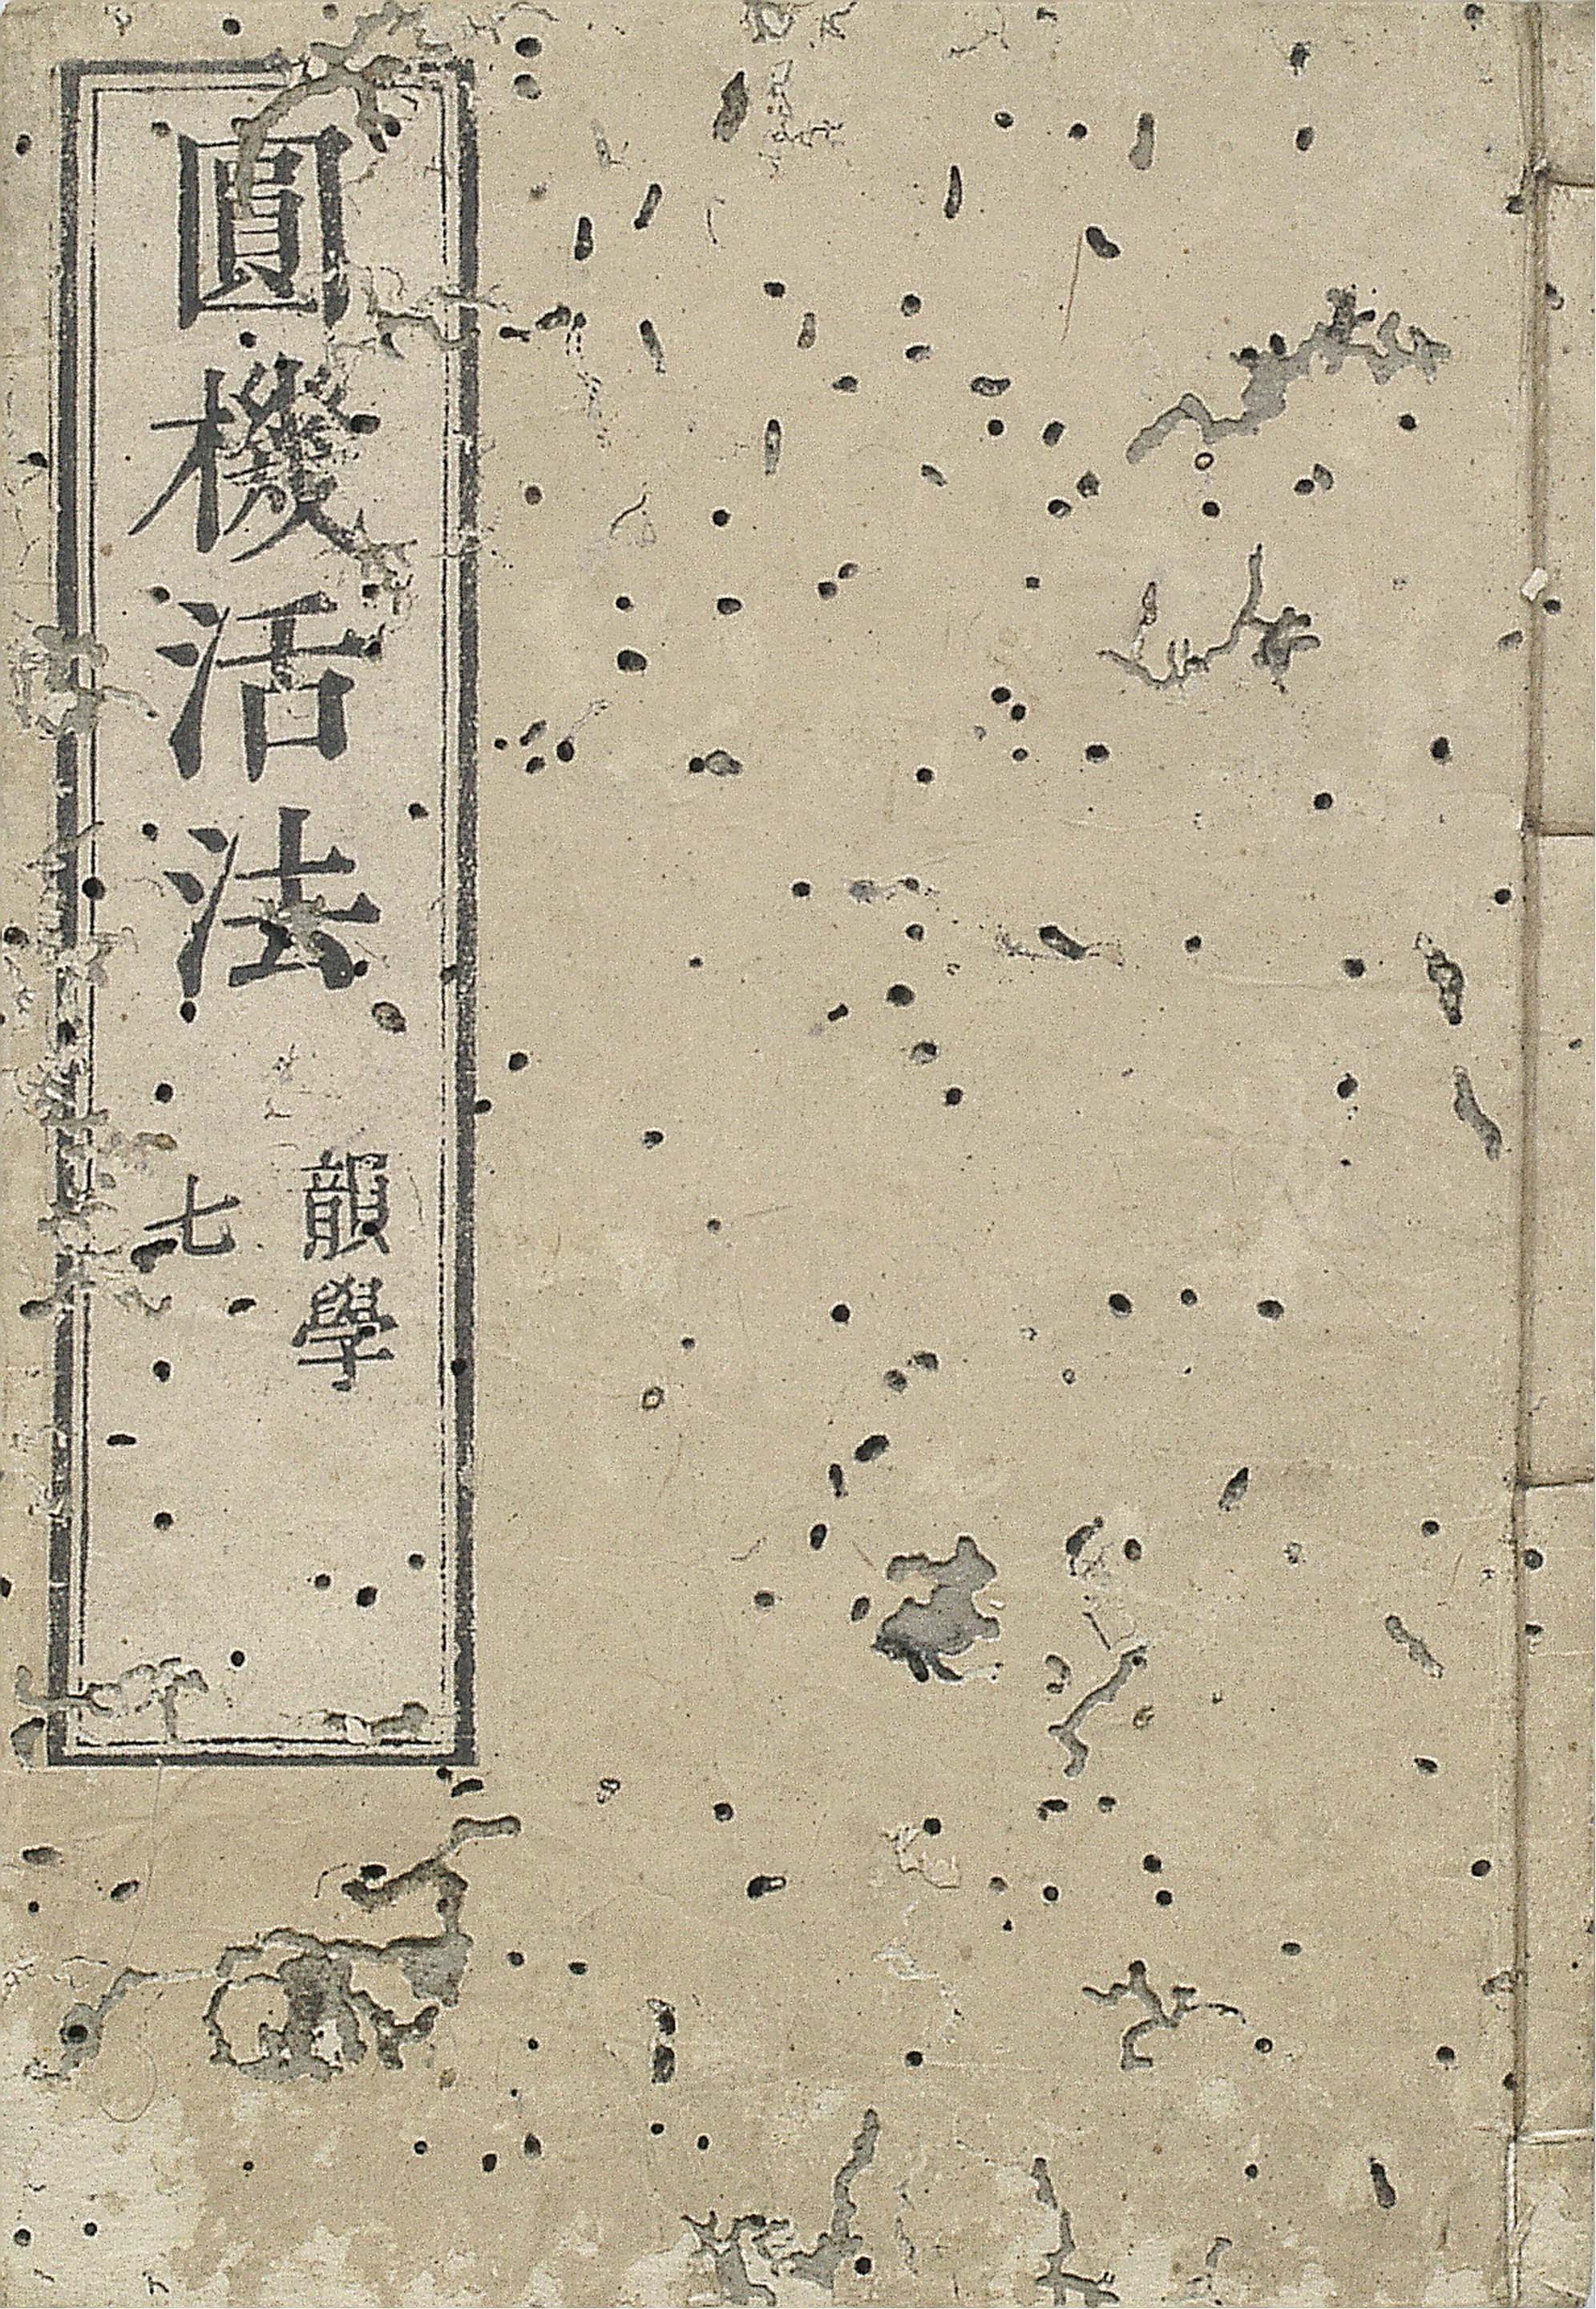 圓機活法
韻學
七